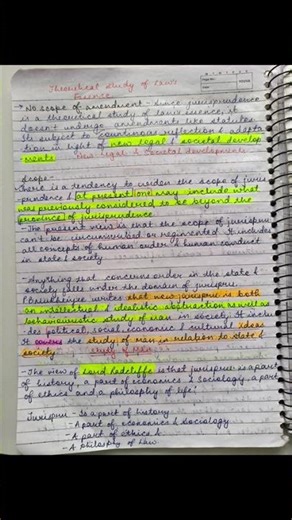 Theoretical Study of Laws
Essence
→ No scope of amendment - Since jurisprudence
is a theoretical study of law's essence, it
doesn't undergo amendments like statutes.
It's subject to continuous reflection & adapta
tion in light of new legal & societal develop
ments. New legal & societal developments
Scope -
There is a tendency to widen the scope of juris
prudence & at present one may include what
was previously considered to be beyond the
province of jurisprudence
- The present view is that the scope of jurispru
can't be circumscribed or regimented. It includes
all concepts of human order & human conduct
in state & society
- Anything that concerns order in the state &
society falls under the domain of jurispru.
P.B. Mukharjee writes that new jurispru is both
an intellectual & idealistic abstraction as well as
behaviouristic study of man in society. It inclu
des political, social, economic & cultural ideas
It covers the study of man in relation to state &
society
- The view of Lord Radcliffe is that jurispru is a part
of history, a part of economics & sociology, a part
of ethics and a philosophy of life.
Jurispru - Is a part of history
- A part of economics & sociology
- A part of ethics &
- A philosophy of law.